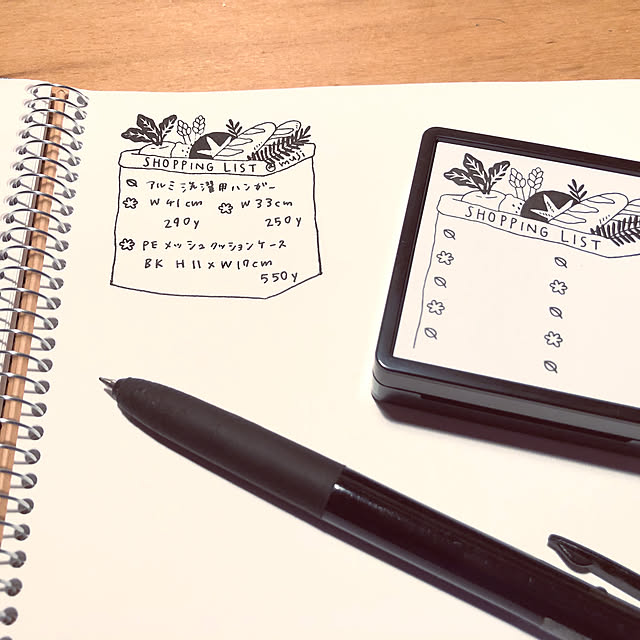 SHOPPING LIST @ muji
アルミ洗濯用ハンガー
W41cm W33cm
290y 250y
PE メッシュクッションケース
BK H11×W17cm
550y
SHOPPING LIST